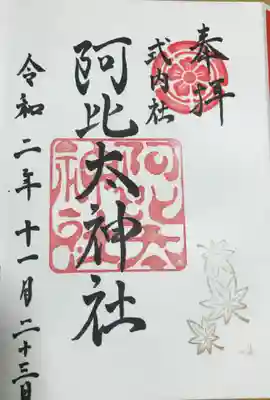 奉拝
式内社
阿比太神社
令和二年十一月二十三日
阿比太神社